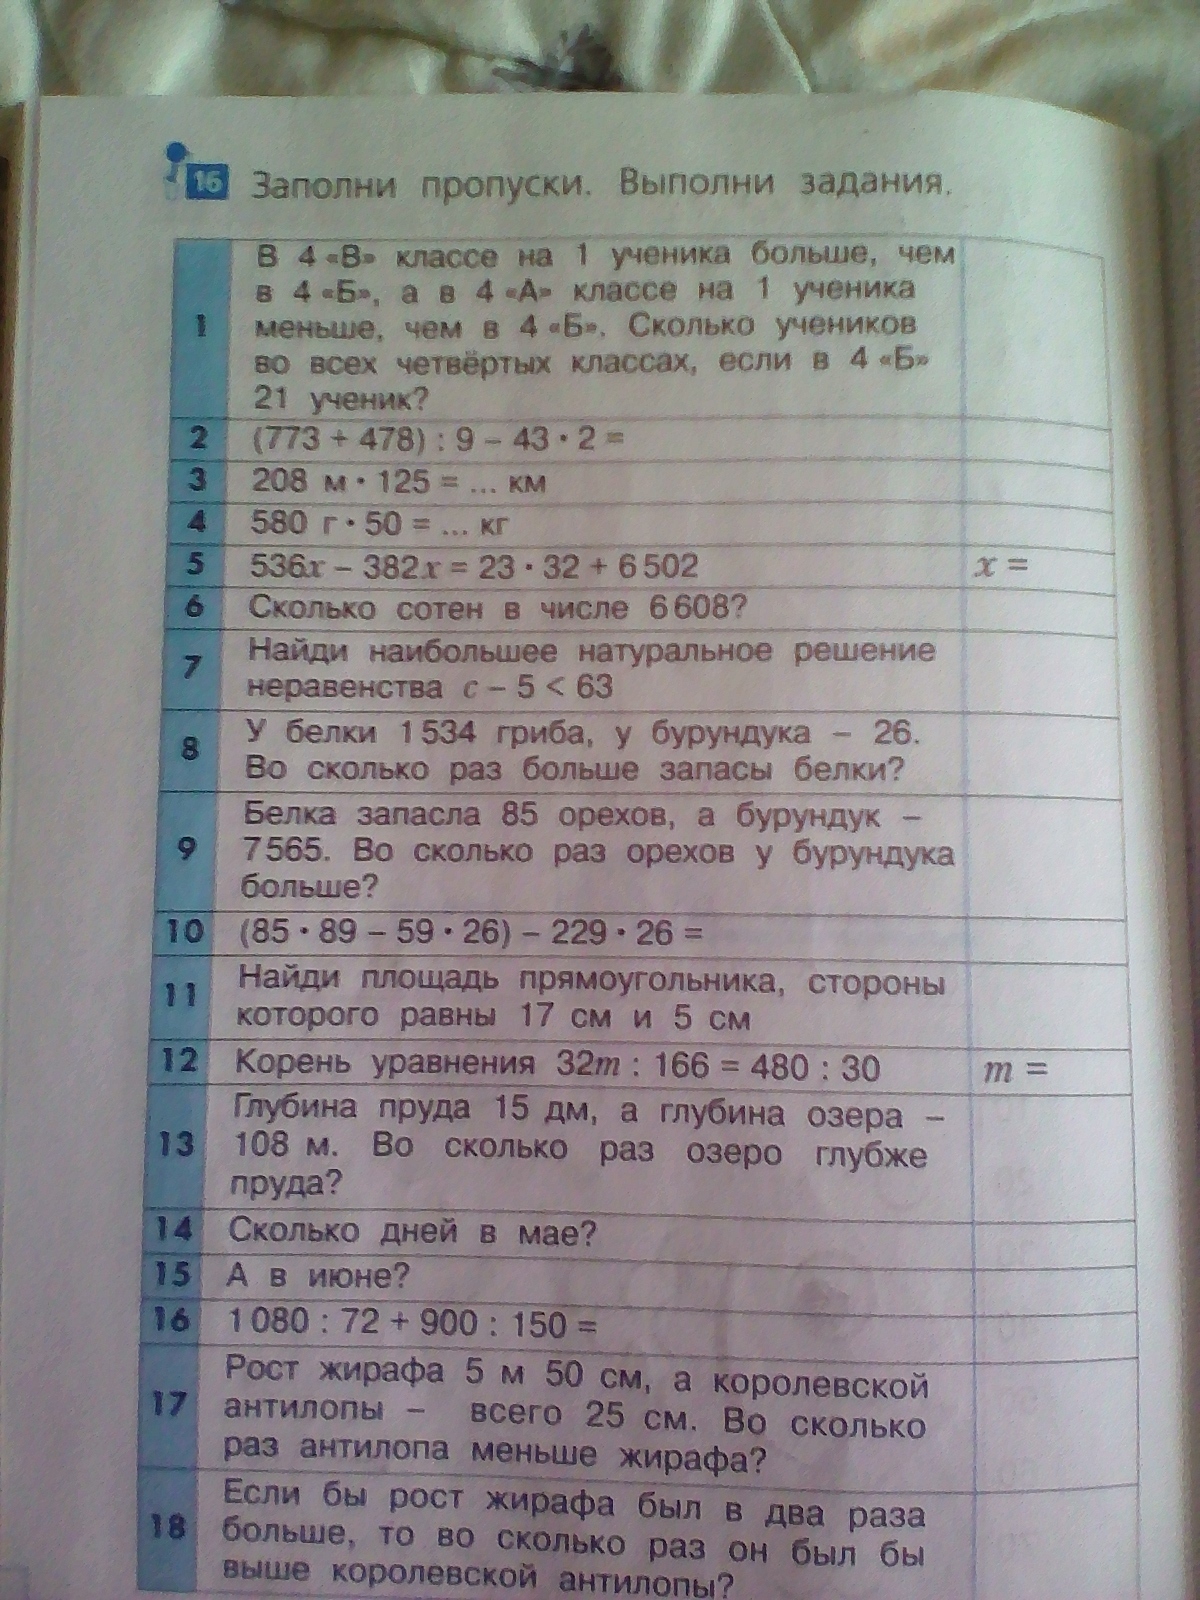 16 Заполни пропуски. Выполни задания.
1
В 4 «В» классе на 1 ученика больше, чем
в 4 «Б», а в 4 «А» классе на 1 ученика
меньше, чем в 4 «Б». Сколько учеников
во всех четвёртых классах, если в 4 «Б»
21 ученик?
2 (773 + 478) : 9 – 43 · 2 =
3 208 м · 125 = ... км
4 580 г · 50 = ... кг
5 536x – 382x = 23 · 32 + 6 502 x =
6 Сколько сотен в числе 6 608?
7
Найди наибольшее натуральное решение
неравенства c – 5 < 63
8
У белки 1 534 гриба, у бурундука – 26.
Во сколько раз больше запасы белки?
9
Белка запасла 85 орехов, а бурундук –
7 565. Во сколько раз орехов у бурундука
больше?
10 (85 · 89 – 59 · 26) – 229 · 26 =
11
Найди площадь прямоугольника, стороны
которого равны 17 см и 5 см
12 Корень уравнения 32m : 166 = 480 : 30 m =
13
Глубина пруда 15 дм, а глубина озера –
108 м. Во сколько раз озеро глубже
пруда?
14 Сколько дней в мае?
15 А в июне?
16 1 080 : 72 + 900 : 150 =
17
Рост жирафа 5 м 50 см, а королевской
антилопы – всего 25 см. Во сколько
раз антилопа меньше жирафа?
18
Если бы рост жирафа был в два раза
больше, то во сколько раз он был бы
выше королевской антилопы?